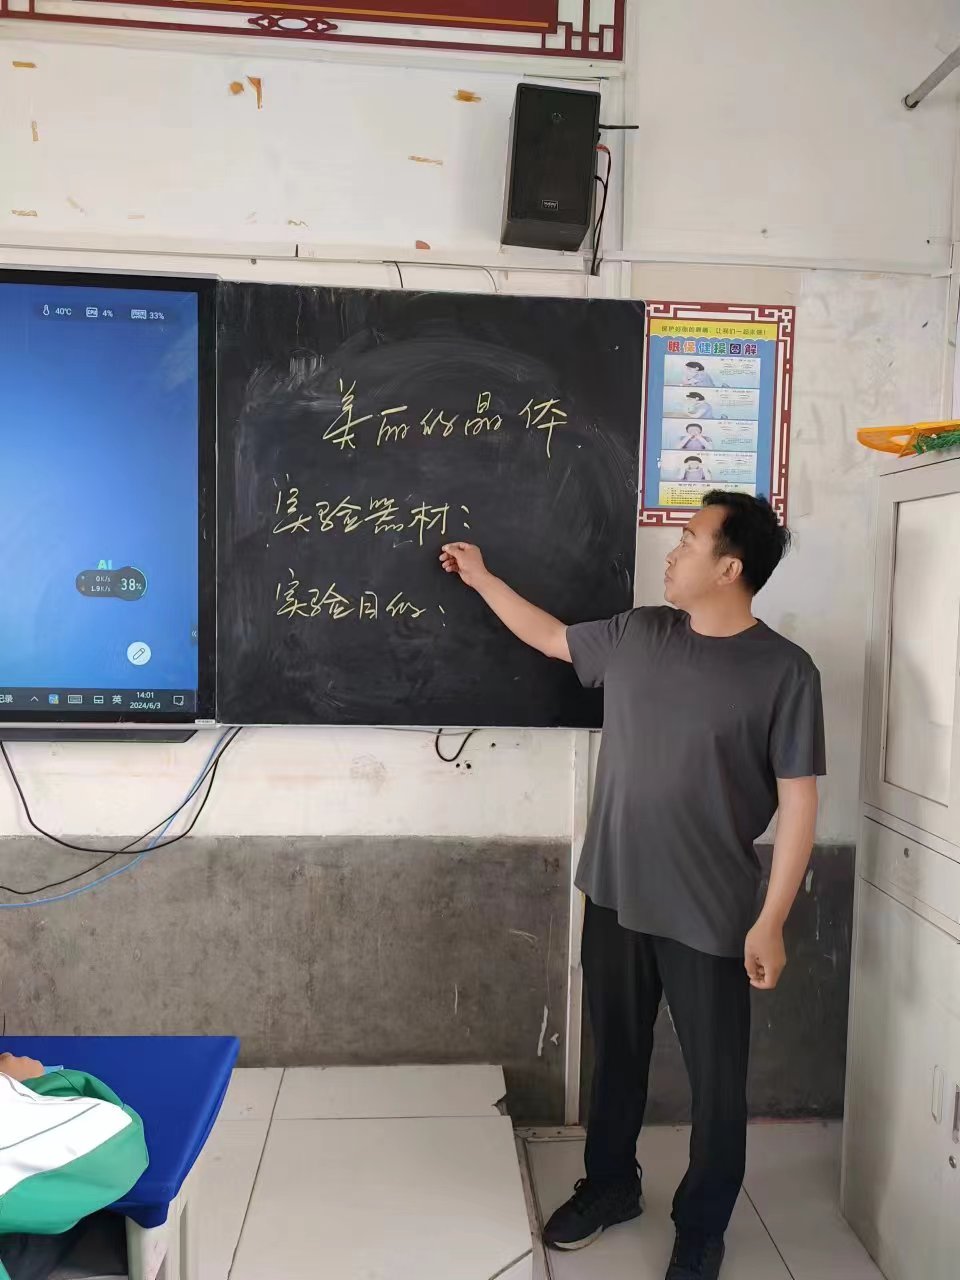 40℃ 4% 33%
美丽的晶体
实验器材：
实验目的：
保护好你的眼睛，让我们一起来做！
眼保健操图解
AI
0K/s
1.9K/s
38%
记录
英
14:01
2024/6/3